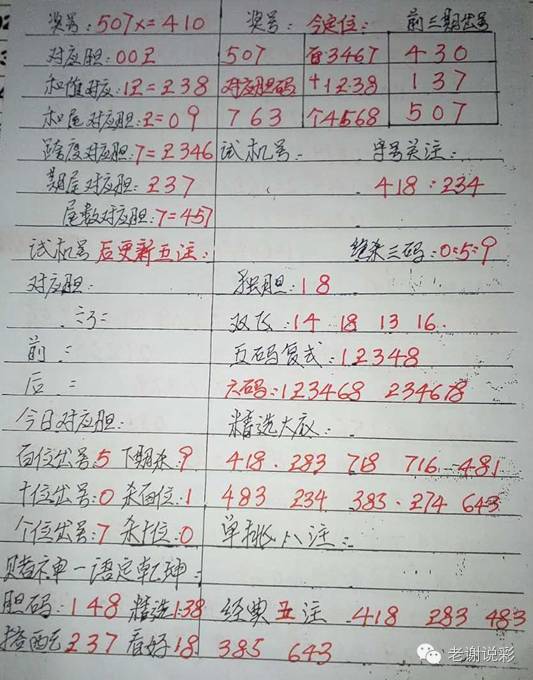 奖号:507x=410 奖号: 今定位: 前三期出号
对应胆:00 2 507 百3467 430
和值对应:12=238 对应胆码 十1238 137
和尾对应胆:2=09 763 个4568 507
跨度对应胆:7=2346 试机号: 守号关注:
期尾对应胆:237 418:234
尾数对应胆:7=457
试机号后更新五注: 绝杀三码:0:5:9
对应胆: 独胆:18
双飞:14 18 13 16.
前 = 五码复式:12348
后 = 六码:123468 234678
今日对应胆: 精选大底:
百位出号:5 下期杀:9 418. 283 718 716 481
十位出号:0 杀百位:1 483 234 383. 274 643
个位出号:7 杀十位:0 单挑八注:
赌神一语定乾坤:
胆码:148 精选138 经典五注 418 283 483
搭配237 看好18 385 643
老谢说彩